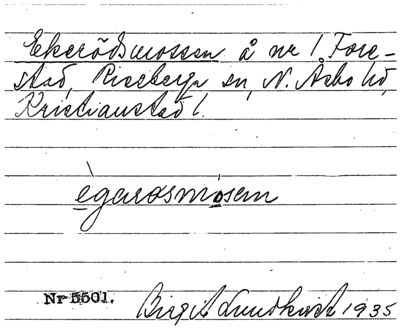 Ekerödsmossen å nr 1 Fore-
stad, Riseberga sn, N. Åsbo hd,
Kristianstad l.
ègarøsmosen
Nr 5501. Birgit Lundkvist 1935